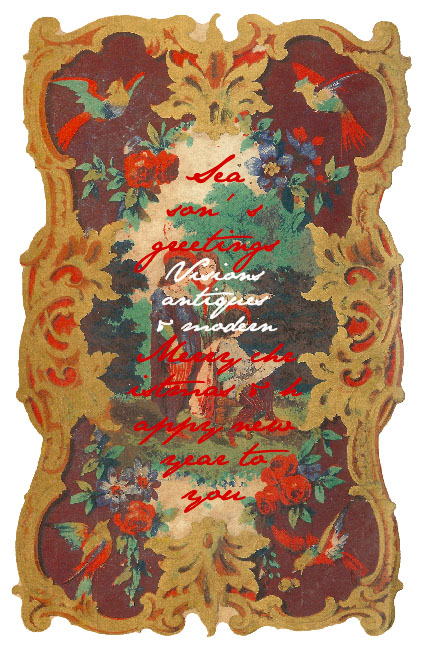 Sea
son's
greetings
Visions
antiques
& modern
Merry chr
istmas & h
appy new
year to
you